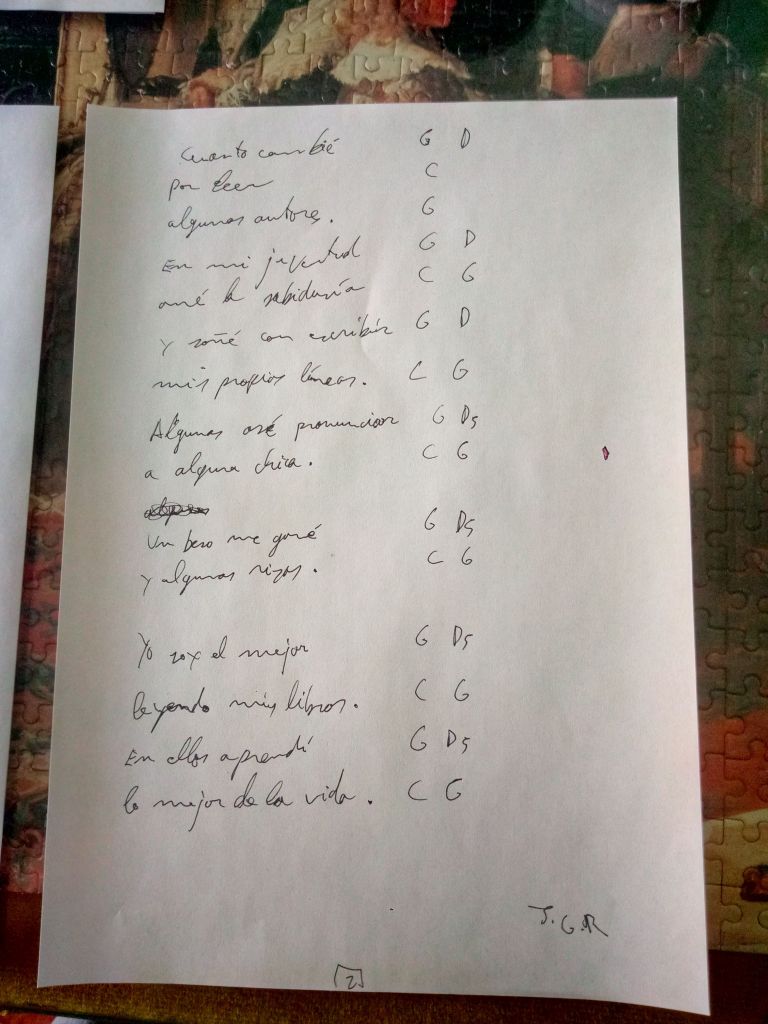 Cuanto cambié G D
por leer C
algunos autores. G
En mi juventud G D
amé la sabiduría C G
Y soñé con escribir G D
mis propias líneas. C G
Algunas osé pronunciar G D5
a alguna chica. C G
Un beso me gané G D5
y algunas risas. C G
Yo soy el mejor G D5
leyendo mis libros. C G
En ellos aprendí G D5
lo mejor de la vida. C G
J.G.R
2